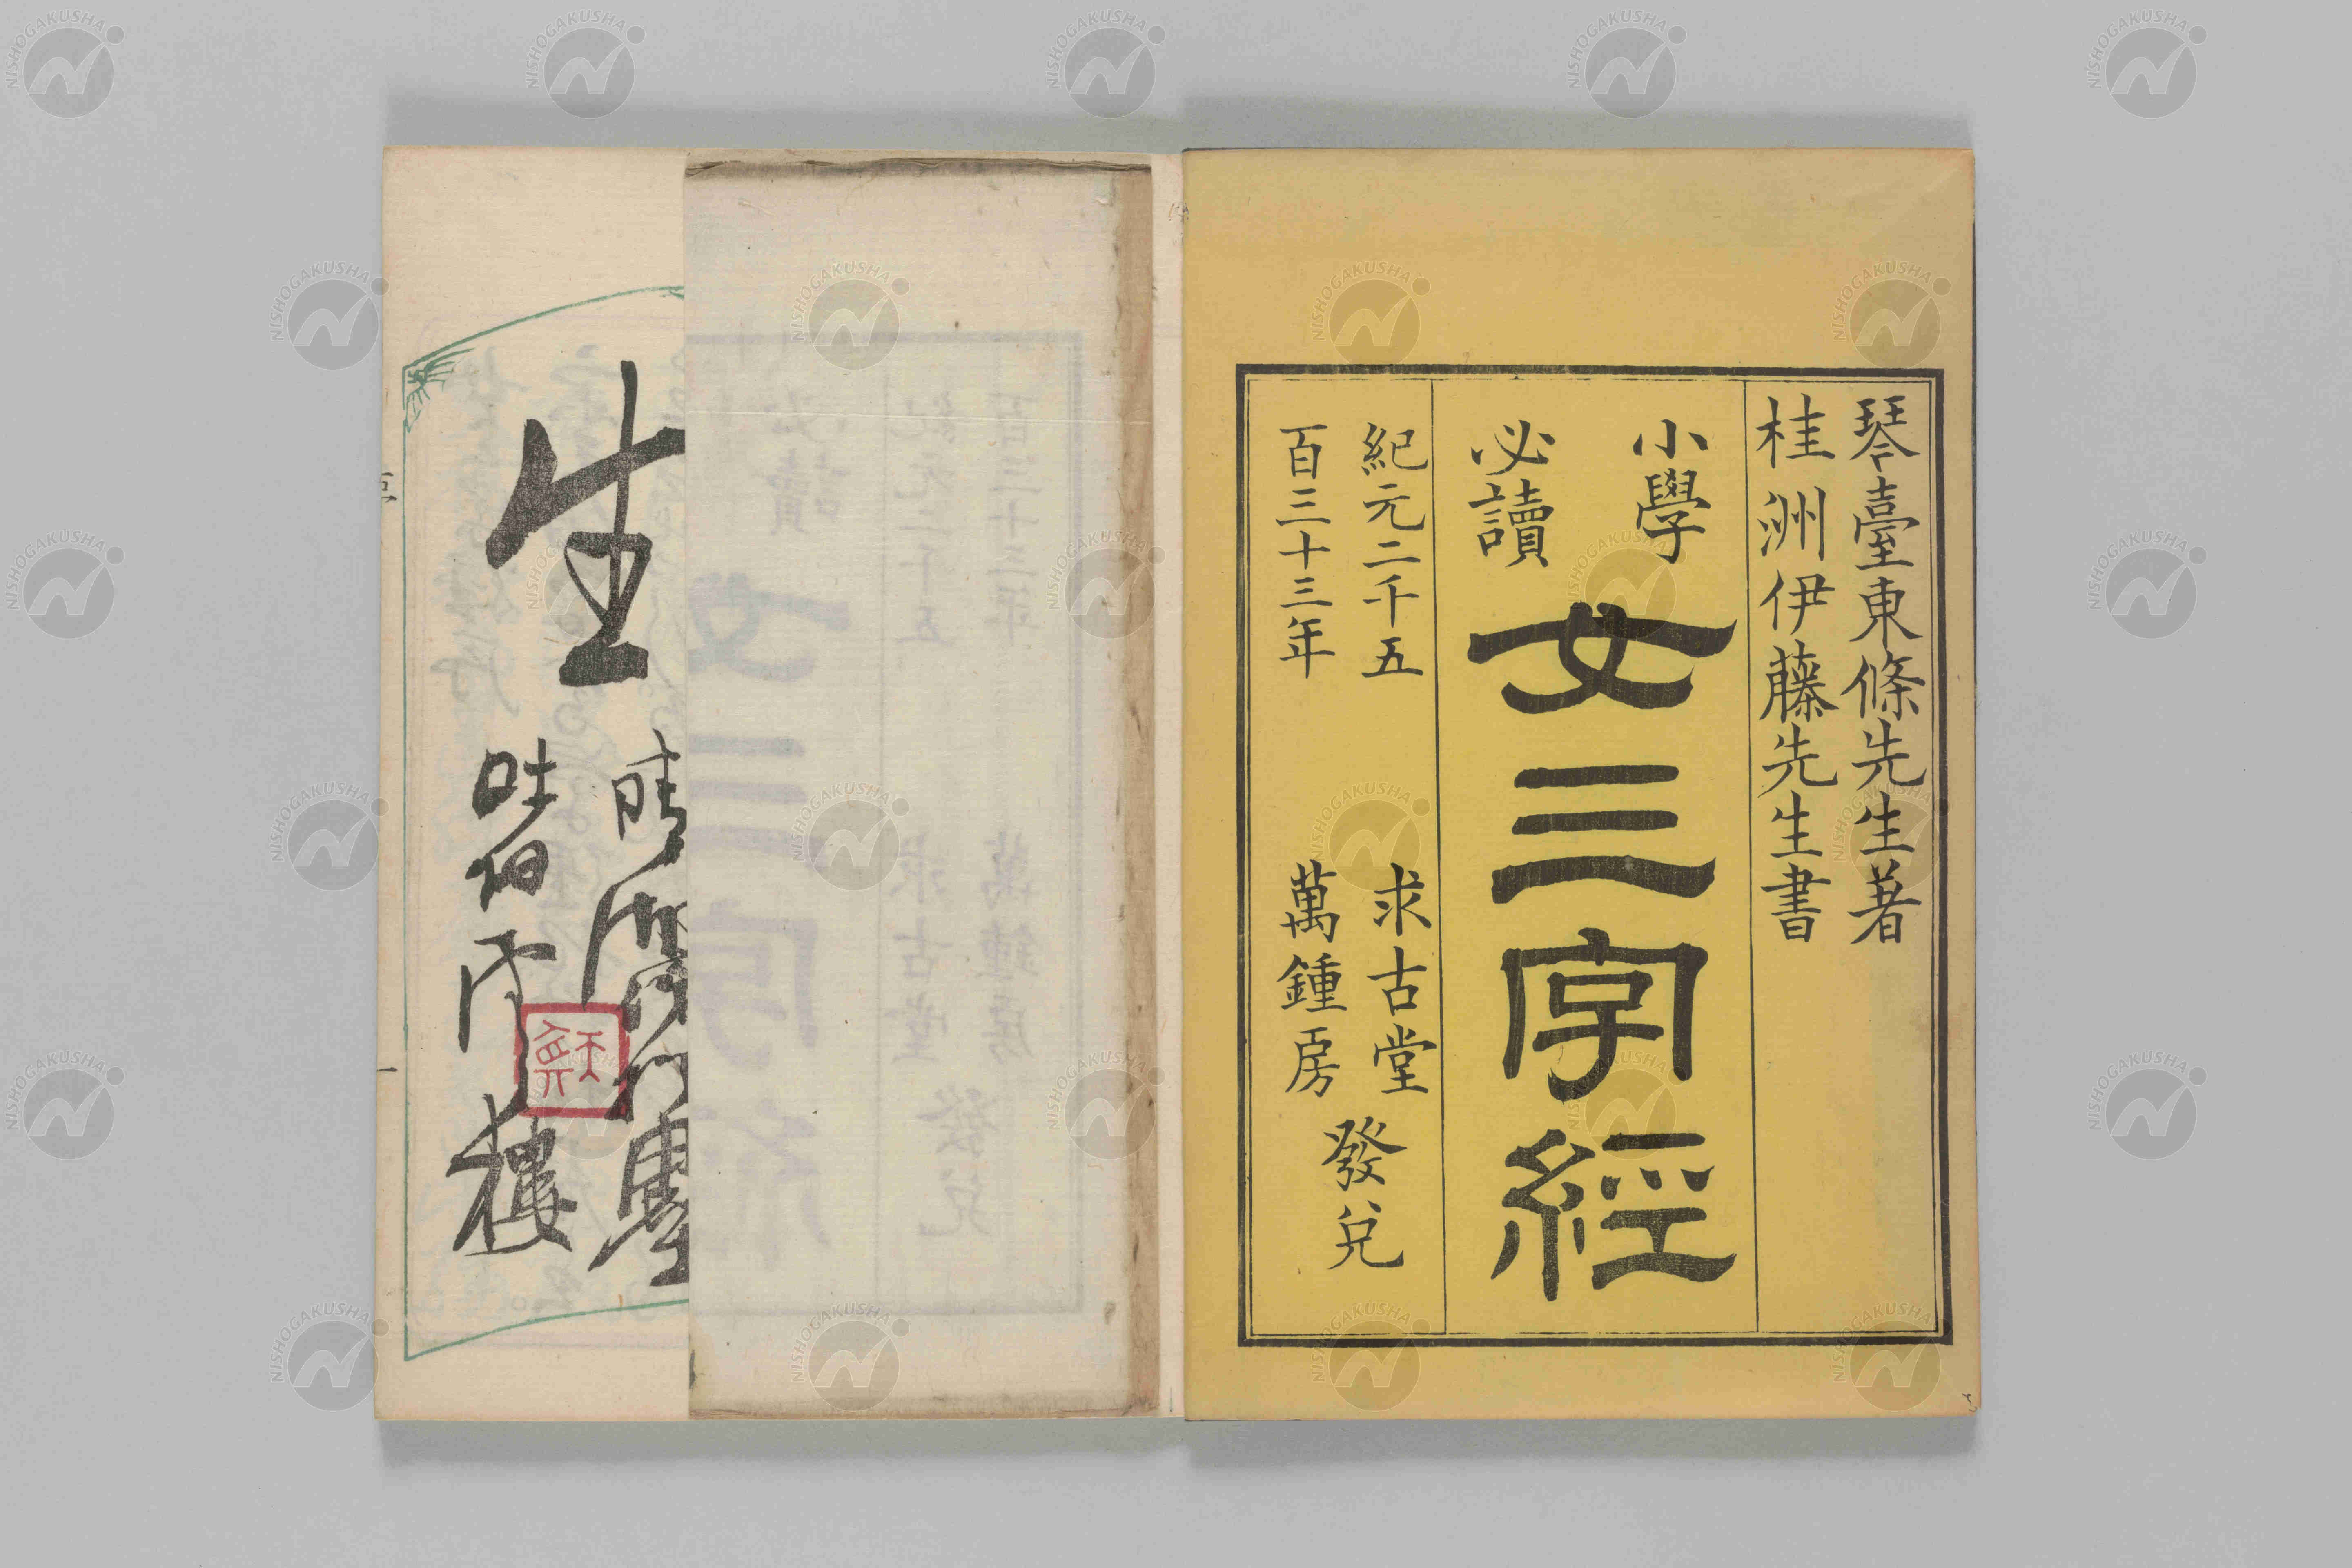 琴臺東條先生著
桂洲伊藤先生書
小學
必讀
女三字經
紀元二千五
百三十三年
求古堂
萬鍾房
發兌
生
樓
NISHOGAKUSHA